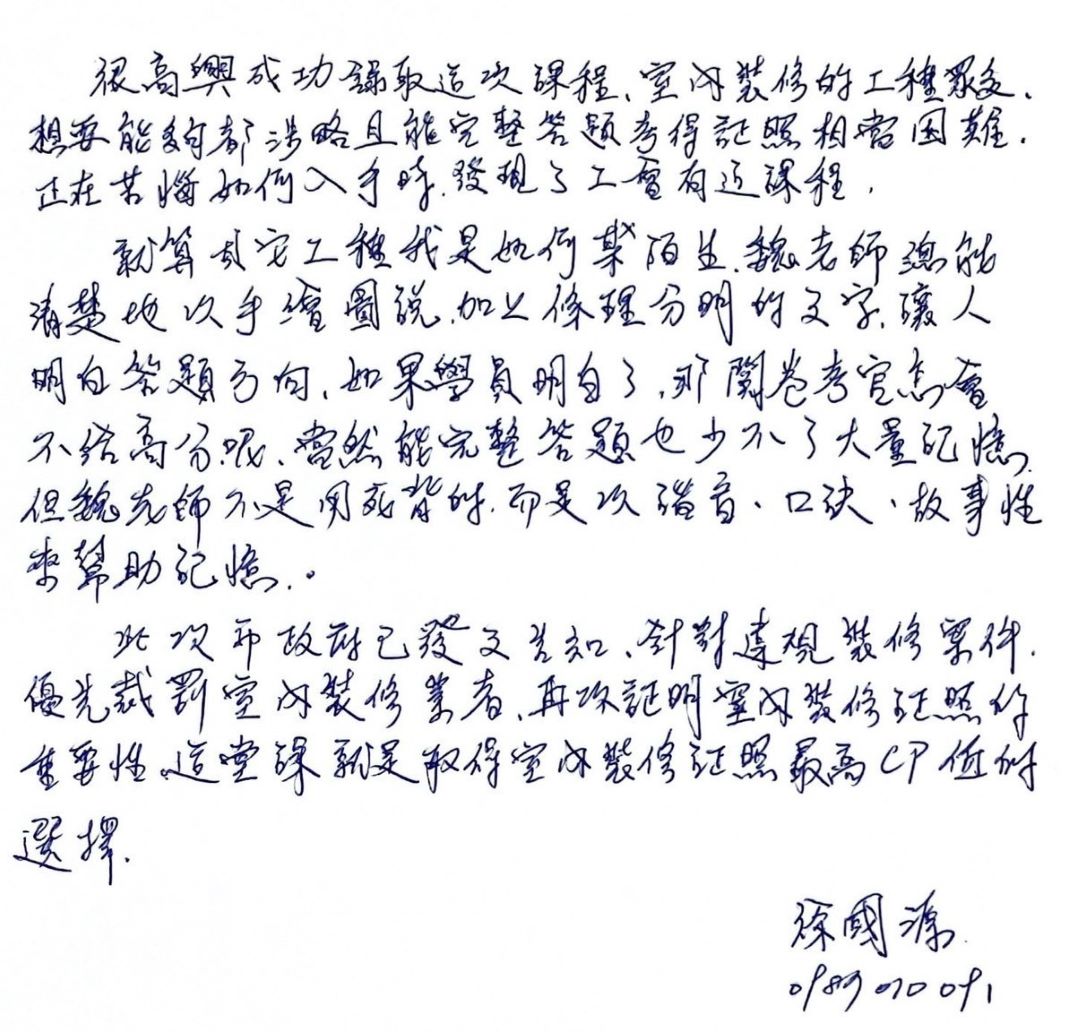 很高興成功錄取這次課程、室內裝修的工種眾多,
想要能夠都涉略且能完整答題考得証照相當困難.
正在苦惱如何入手時.發現了工會有这課程,
就算其它工種我是如何某陌生.魏老師總能
清楚地以手繪圖說.加上條理分明的文字,讓人
明白答題方向,如果學員明白了,那閱卷考官怎會
不給高分呢、當然能完整答題也少不了大量記憶,
但魏老師不是用死背的.而是以諧音、口訣、故事性
來幫助記憶.。
此次市政府已發文告知、針對違規裝修案件.
優先裁罰室內裝修業者,再次証明室內裝修証照的
重要性,這堂課就是取得室內裝修証照最高CP值的
選擇.
徐國源